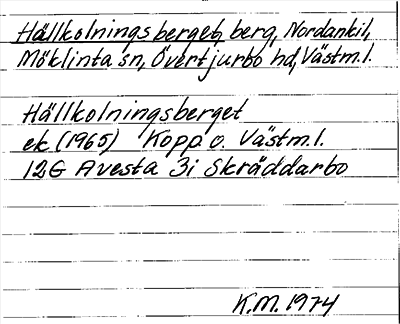 Hällkolningsberget, berg, Nordankil,
Möklinta sn, Övertjurbo hd, Västm.l.
Hällkolningsberget
ek (1965) Kopp o. Västm.l.
12G Avesta 3i Skräddarbo
K.M. 1974